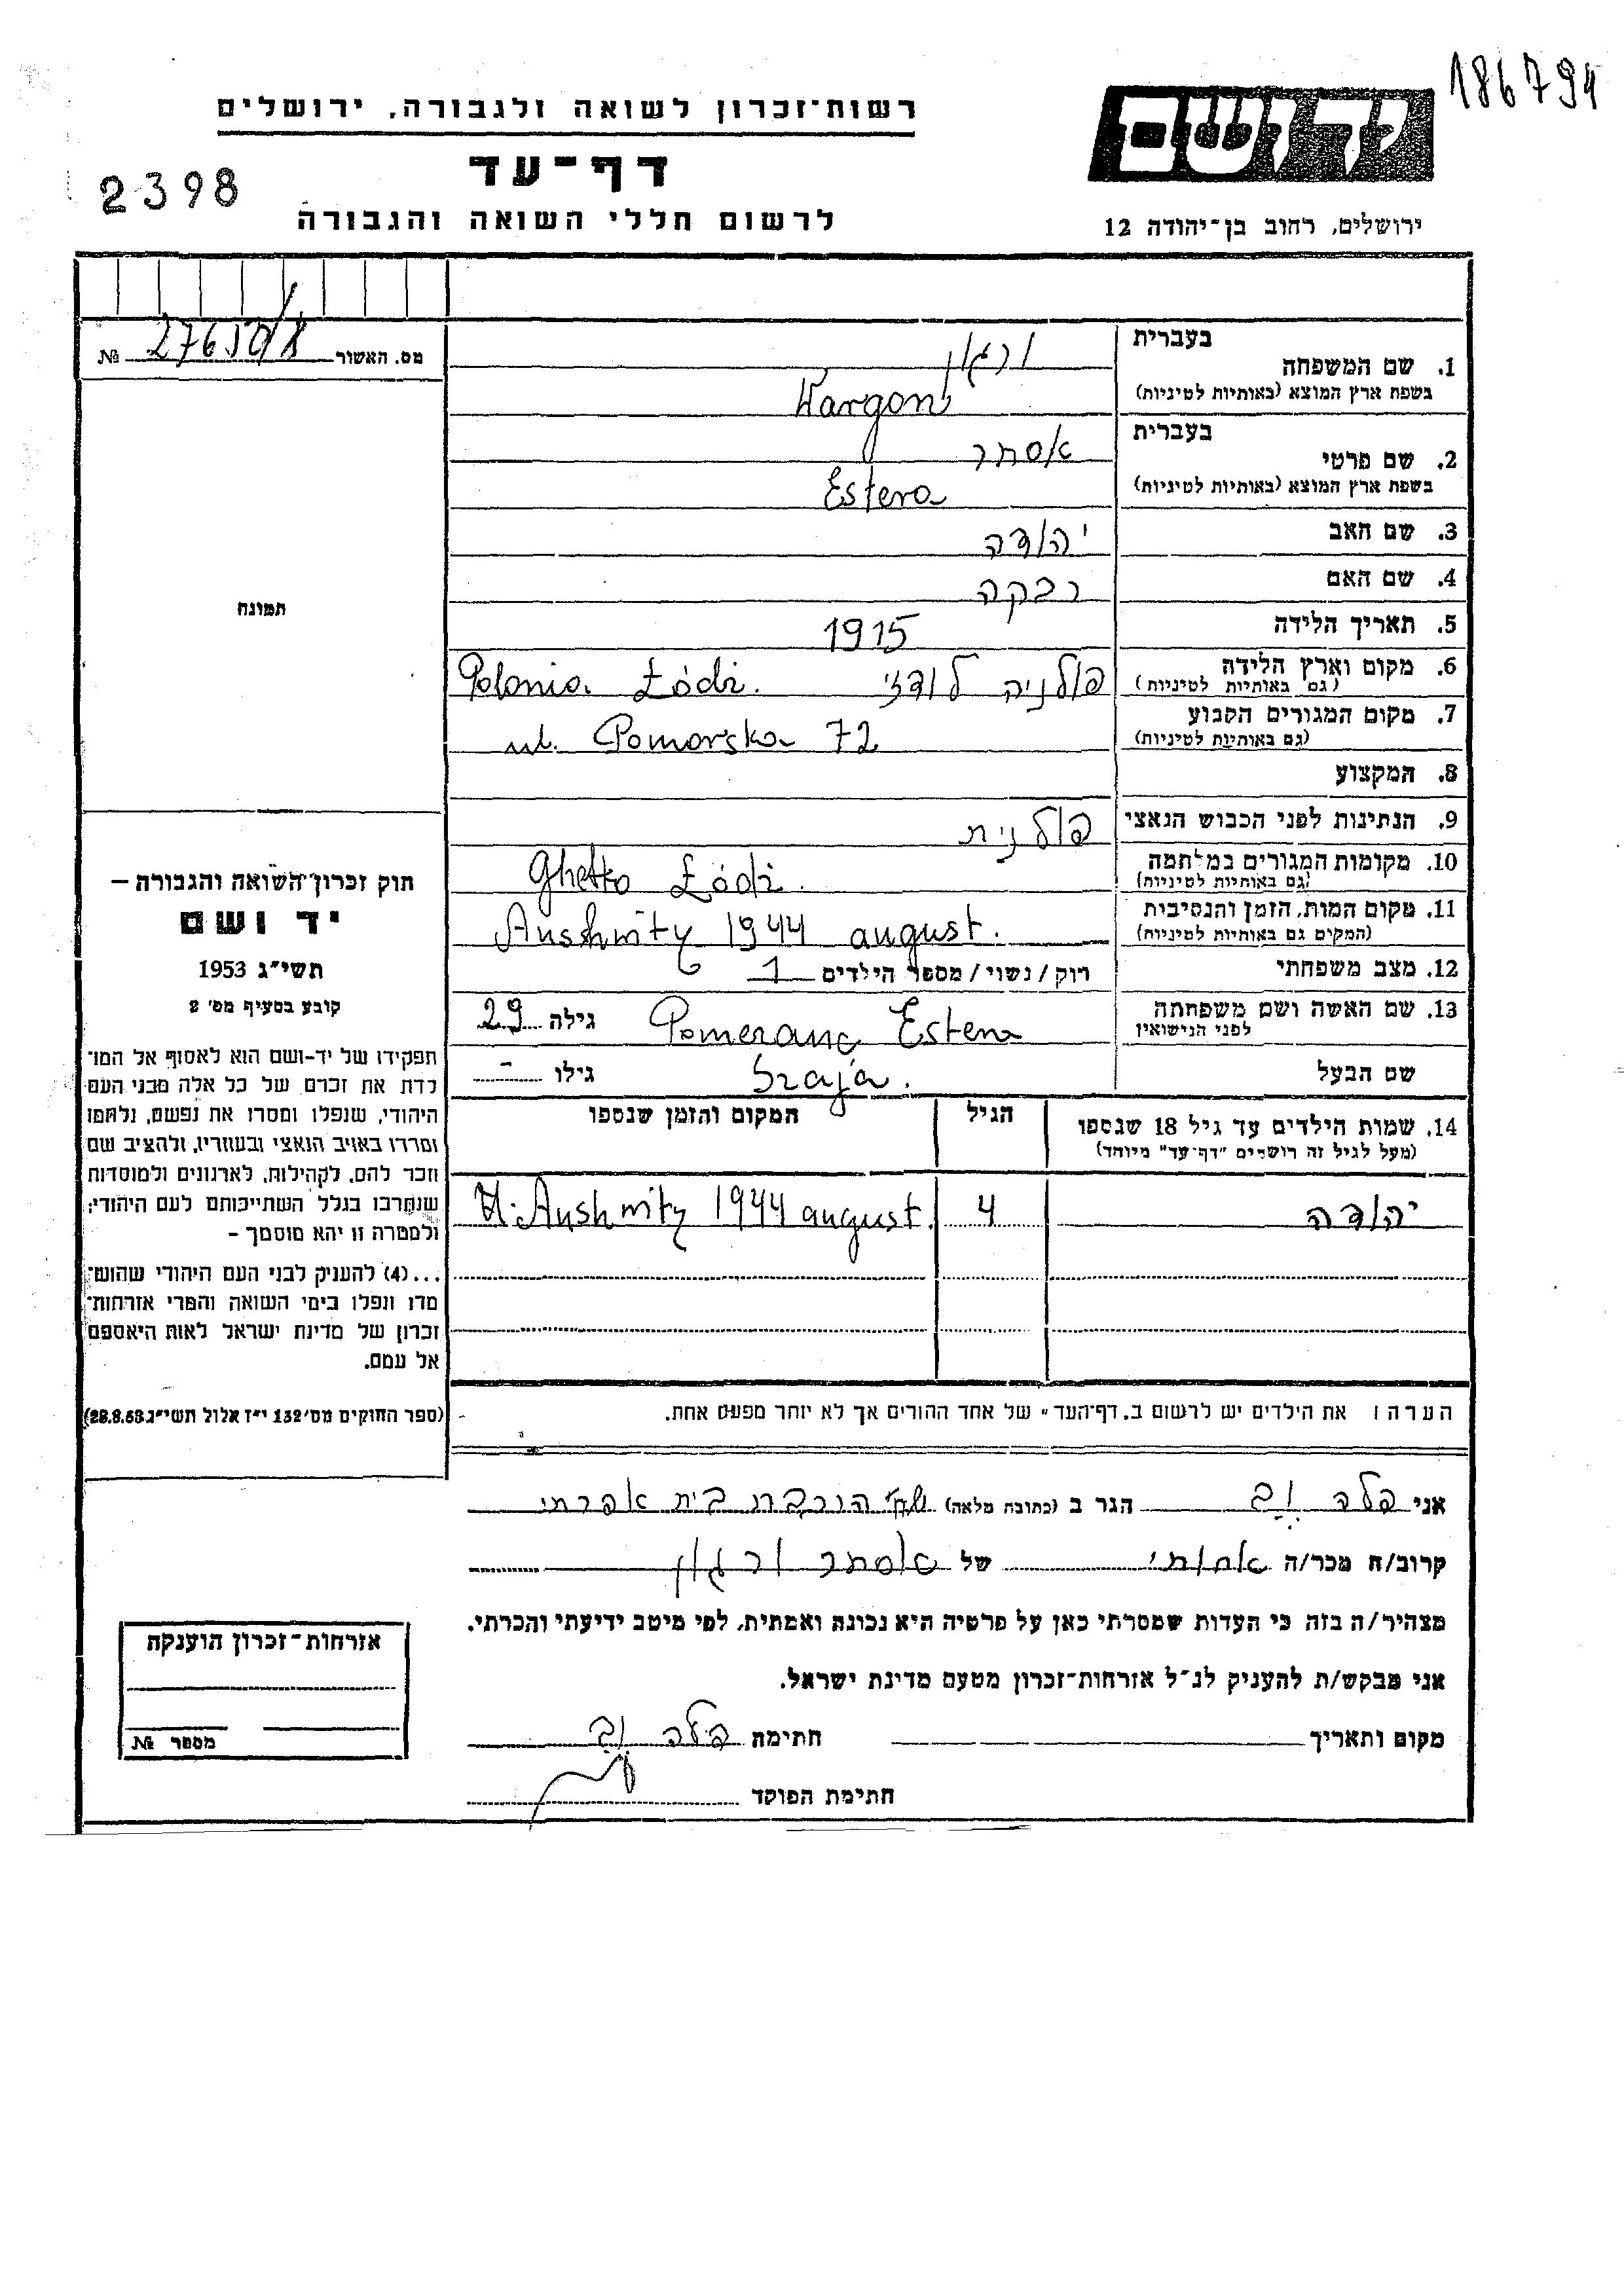 186794
רשות־זכרון לשואה ולגבורה, ירושלים
יד ושם
דף־עד
2398
לרשום חללי השואה והגבורה
ירושלים, רחוב בן־יהודה 12
מס. האשור № 
בעברית
1. שם המשפחה ורגון
בשפת ארץ המוצא (באותיות לטיניות) Wargon
בעברית
2. שם פרטי אסתר
בשפת ארץ המוצא (באותיות לטיניות) Estera
3. שם האב יהודה
4. שם האם רבקה
5. תאריך הלידה 1915
6. מקום וארץ הלידה (גם באותיות לטיניות) פולניה לודזי Polonia Łódź.
7. מקום המגורים הקבוע (גם באותיות לטיניות) ul. Pomorska 72
8. המקצוע
9. הנתינות לפני הכבוש הנאצי פולנית
10. מקומות המגורים במלחמה (גם באותיות לטיניות) Ghetto Łódź.
11. מקום המות, הזמן והנסיבות (המקום גם באותיות לטיניות) Aushwitz 1944 august.
12. מצב משפחתי רוק / נשוי / מספר הילדים 1
13. שם האשה ושם משפחתה לפני הנישואין Pomeranc Estera גילה 29
שם הבעל Szaja. גילו -
14. שמות הילדים עד גיל 18 שנספו הגיל המקום והזמן שנספו
(מעל לגיל זה רושמים "דף־עד" מיוחד)
יהודה 4 Aushwitz 1944 august.
תמונה
חוק זכרון־השואה והגבורה –
יד ושם
תשי״ג 1953
קובע בסעיף מס׳ 2
תפקידו של יד-ושם הוא לאסוף אל המו־
לדת את זכרם של כל אלה מבני העם
היהודי, שנפלו ומסרו את נפשם, נלחמו
ומרדו באויב הנאצי ובעוזריו, ולהציב שם
וזכר להם, לקהילות, לארגונים ולמוסדות
שנחרבו בגלל השתייכותם לעם היהודי;
ולמטרה זו יהא מוסמך –
...(4) להעניק לבני העם היהודי שהוש־
מדו ונפלו בימי השואה והמרי אזרחות־
זכרון של מדינת ישראל לאות היאספם
אל עמם.
(ספר החוקים מס׳ 132 י״ז אלול תשי״ג 28.8.53)
הערה: את הילדים יש לרשום ב„דף־העד״ של אחד ההורים אך לא יותר מפעם אחת.
אני בלה הגר ב (כתובת מלאה) שכ׳ הרכבת בית אפרתי
קרוב/ה מכר/ה אחותי של אסתר ורגון
מצהיר/ה בזה כי העדות שמסרתי כאן על פרטיה היא נכונה ואמתית, לפי מיטב ידיעתי והכרתי.
אני מבקש/ת להעניק לנ״ל אזרחות־זכרון מטעם מדינת ישראל.
מקום ותאריך חתימה בלה
חתימת הפוקד
אזרחות־זכרון הוענקה
מספר №